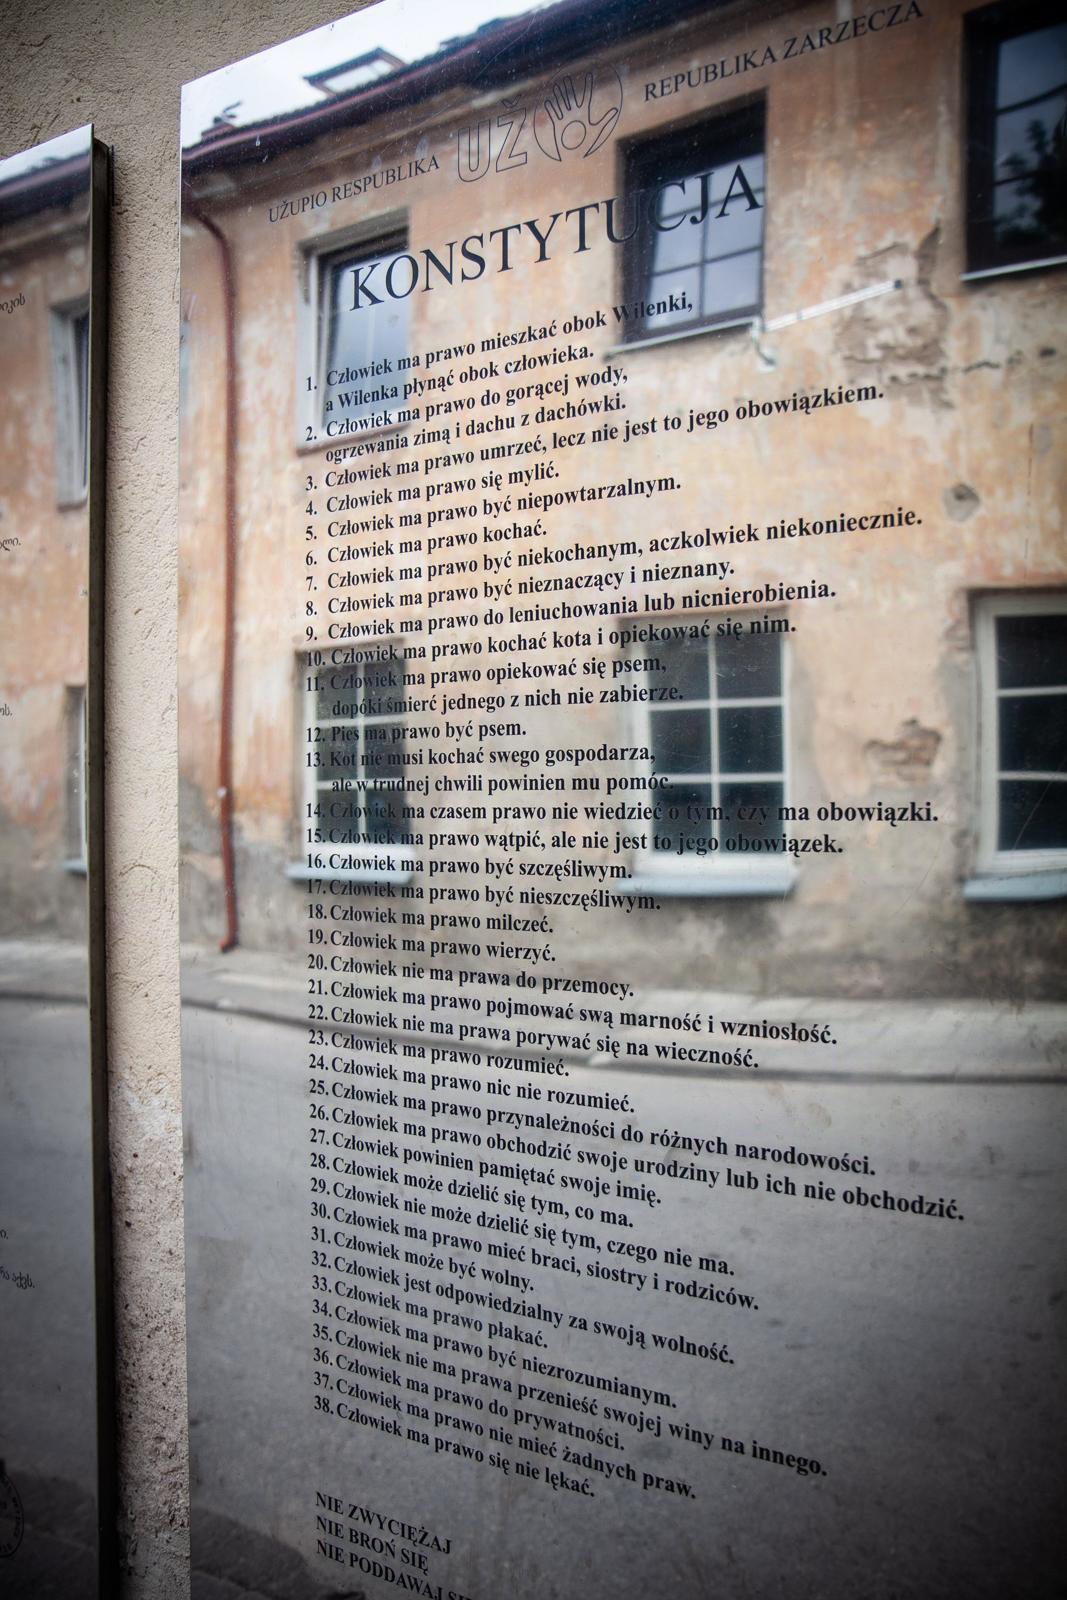 UŽUPIO RESPUBLIKA UŽ REPUBLIKA ZARZECZA
KONSTYTUCJA
1. Człowiek ma prawo mieszkać obok Wilenki,
a Wilenka płynąć obok człowieka.
2. Człowiek ma prawo do gorącej wody,
ogrzewania zimą i dachu z dachówki.
3. Człowiek ma prawo umrzeć, lecz nie jest to jego obowiązkiem.
4. Człowiek ma prawo się mylić.
5. Człowiek ma prawo być niepowtarzalnym.
6. Człowiek ma prawo kochać.
7. Człowiek ma prawo być niekochanym, aczkolwiek niekoniecznie.
8. Człowiek ma prawo być nieznaczący i nieznany.
9. Człowiek ma prawo do leniuchowania lub nicnierobienia.
10. Człowiek ma prawo kochać kota i opiekować się nim.
11. Człowiek ma prawo opiekować się psem,
dopóki śmierć jednego z nich nie zabierze.
12. Pies ma prawo być psem.
13. Kot nie musi kochać swego gospodarza,
ale w trudnej chwili powinien mu pomóc.
14. Człowiek ma czasem prawo nie wiedzieć o tym, czy ma obowiązki.
15. Człowiek ma prawo wątpić, ale nie jest to jego obowiązek.
16. Człowiek ma prawo być szczęśliwym.
17. Człowiek ma prawo być nieszczęśliwym.
18. Człowiek ma prawo milczeć.
19. Człowiek ma prawo wierzyć.
20. Człowiek nie ma prawa do przemocy.
21. Człowiek ma prawo pojmować swą marność i wzniosłość.
22. Człowiek nie ma prawa porywać się na wieczność.
23. Człowiek ma prawo rozumieć.
24. Człowiek ma prawo nic nie rozumieć.
25. Człowiek ma prawo przynależności do różnych narodowości.
26. Człowiek ma prawo obchodzić swoje urodziny lub ich nie obchodzić.
27. Człowiek powinien pamiętać swoje imię.
28. Człowiek może dzielić się tym, co ma.
29. Człowiek nie może dzielić się tym, czego nie ma.
30. Człowiek ma prawo mieć braci, siostry i rodziców.
31. Człowiek może być wolny.
32. Człowiek jest odpowiedzialny za swoją wolność.
33. Człowiek ma prawo płakać.
34. Człowiek ma prawo być niezrozumianym.
35. Człowiek nie ma prawa przenieść swojej winy na innego.
36. Człowiek ma prawo do prywatności.
37. Człowiek ma prawo nie mieć żadnych praw.
38. Człowiek ma prawo się nie lękać.
NIE ZWYCIĘŻAJ
NIE BROŃ SIĘ
NIE PODDAWAJ